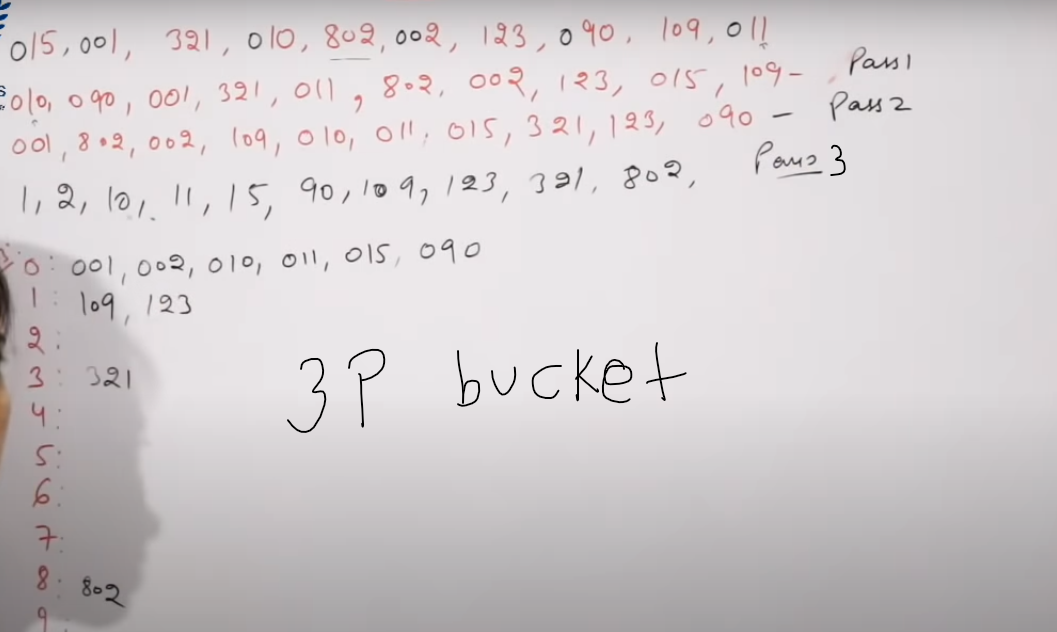 015, 001, 321, 010, 802, 002, 123, 090, 109, 011
010, 090, 001, 321, 011, 802, 002, 123, 015, 109 - Pass1
001, 802, 002, 109, 010, 011, 015, 321, 123, 090 - Pass2
1, 2, 10, 11, 15, 90, 109, 123, 321, 802, Pass 3
0: 001, 002, 010, 011, 015, 090
1: 109, 123
2:
3: 321
4:
5:
6:
7:
8: 802
9
3P bucket